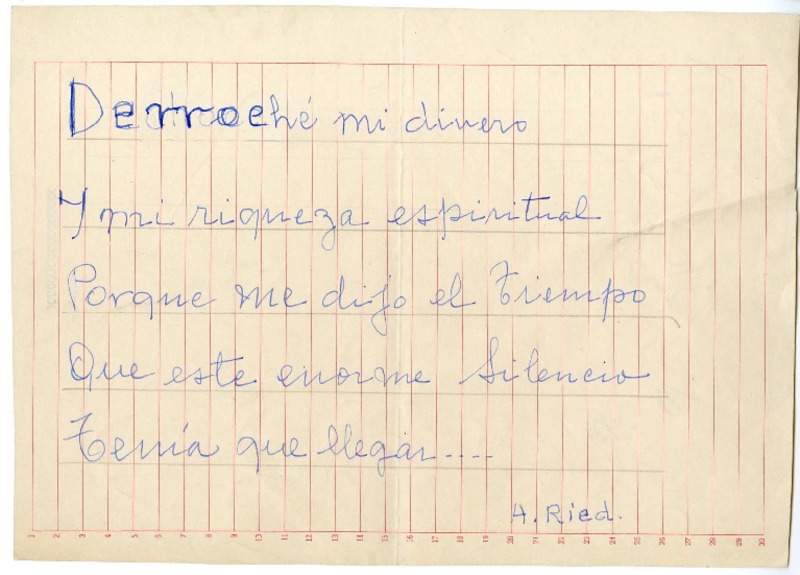 Derroché mi dinero
Y mi riqueza espiritual
Porque me dijo el Tiempo
Que este enorme Silencio
Tenía que llegar....
A. Ried.
1 2 3 4 5 6 7 8 9 10 11 12 13 14 15 16 17 18 19 20 21 22 23 24 25 26 27 28 29 30